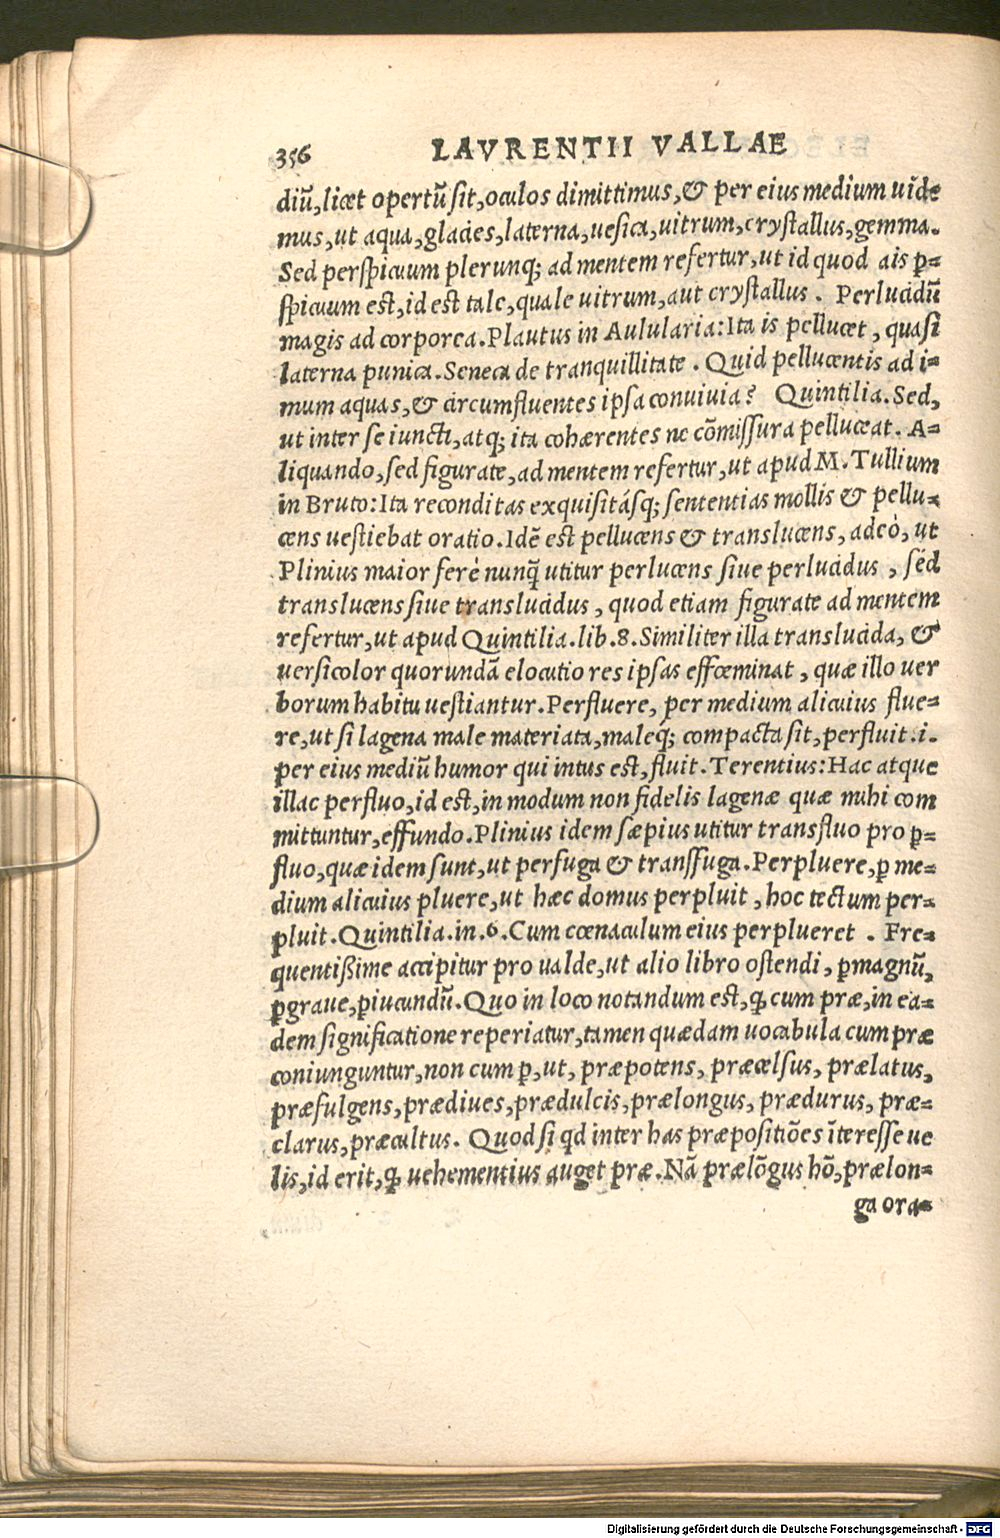 356 LAVRENTII VALLAE
diũ, licet opertũ sit, oculos dimittimus, & per eius medium uide
mus, ut aqua, glacies, laterna, uesica, uitrum, crystallus, gemma.
Sed perspicuum plerunq; ad mentem refertur, ut id quod ais ꝑ-
spicuum est, id est tale, quale uitrum, aut crystallus. Perlucidũ
magis ad corporea. Plautus in Aulularia: Ita is pellucet, quasi
laterna punica. Seneca de tranquillitate. Quid pellucentis ad i-
mum aquas, & circumfluentes ipsa conuiuia? Quintilia. Sed,
ut inter se iuncti, atq; ita cohærentes ne cõmissura pelluceat. A-
liquando, sed figurate, ad mentem refertur, ut apud M. Tullium
in Bruto: Ita reconditas exquisitásq; sententias mollis & pellu-
cens uestiebat oratio. Idẽ est pellucens & translucens, adeò, ut
Plinius maior ferè nunq̃ utitur perlucens siue perlucidus, sed
translucens siue translucidus, quod etiam figurate ad mentem
refertur, ut apud Quintilia. lib. 8. Similiter illa translucida, &
uersicolor quorundã elocutio res ipsas effœminat, quæ illo uer
borum habitu uestiantur. Perfluere, per medium alicuius flue-
re, ut si lagena male materiata, maleq́; compacta sit, perfluit. i.
per eius mediũ humor qui intus est, fluit. Terentius: Hac atque
illac perfluo, id est, in modum non fidelis lagenæ quæ mihi com
mittuntur, effundo. Plinius idem sæpius utitur transfluo pro ꝑ-
fluo, quæ idem sunt, ut perfuga & transfuga. Perpluere, ꝑ me-
dium alicuius pluere, ut hæc domus perpluit, hoc tectum per-
pluit. Quintilia. in. 6. Cum cœnaculum eius perplueret. Fre-
quentißime accipitur pro ualde, ut alio libro ostendi, ꝑmagnũ,
ꝑgraue, ꝑiucundũ. Quo in loco notandum est, ꝙ cum præ, in ea-
dem significatione reperiatur, tamen quædam uocabula cum præ
coniunguntur, non cum ꝑ, ut, præpotens, præcelsus, prælatus,
præfulgens, prædiues, prædulcis, prælongus, prædurus, præ-
clarus, præcultus. Quod si qd inter has præpositiões ĩteresse ue
lis, id erit, ꝙ uehementius auget præ. Nã prælõgus hõ, prælon-
ga ora-
Digitalisierung gefördert durch die Deutsche Forschungsgemeinschaft - DFG